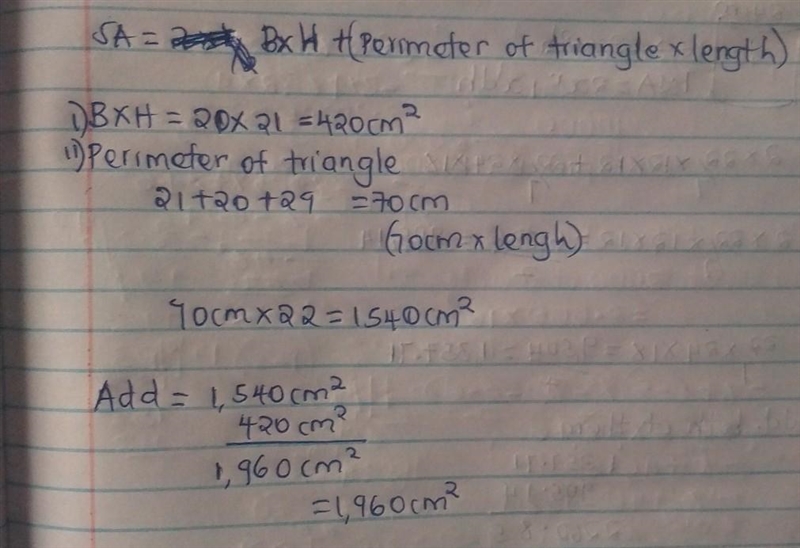 SA = B×H +(Perimeter of triangle × length)
i) B×H = 20×21 = 420cm²
ii) Perimeter of triangle
21+20+29 = 70cm
(70cm × lengh)
70cm×22 = 1540cm²
Add = 1,540cm²
420cm²
1,960cm²
=1,960cm²